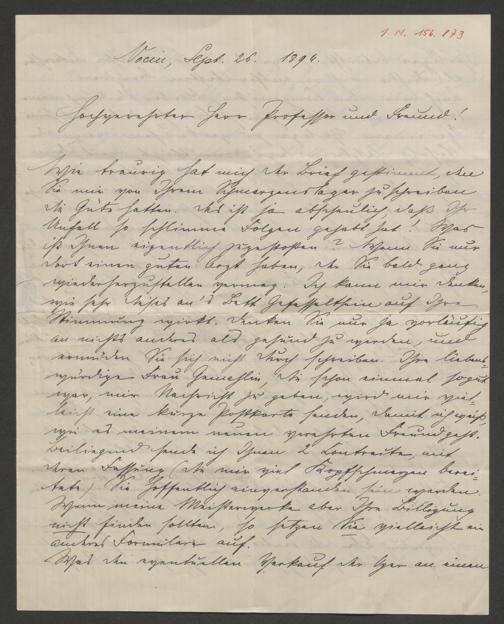 J. N. 156.873
Sept. 26. 1894.
Hochgeehrter Herr Professor und Freund!
Wie traurig hat mich der Brief gestimmt, den
Sie mir von Ihrem Schmerzenslager zu schreiben
die Güte hatten. Das ist ja abscheulich, daß Ihr
Unfall so schlimme Folgen gehabt hat! Was
ist Ihnen eigentlich zugestoßen? Wenn Sie nur
dort einen guten Arzt haben, der Sie bald ganz
wiederherzustellen vermag. Ich kann mir denken,
wie sehr dieses an's Bett Gefesseltsein auf Ihre
Stimmung wirkt. Denken Sie nur ja vorläufig
an nichts anderes als gesund zu werden, und
ermüden Sie sich nicht durch Schreiben. Ihre liebens-
würdige Frau Gemahlin, die schon einmal so gut
war, mir Nachricht zu geben, wird mir viel-
leicht eine kurze Postkarte senden, damit ich weiß,
wie es meinem neuen verehrten Freund geht.
Beiliegend sende ich Ihnen 2 Contracte, mit
deren Fassung (die mir viel Kopfschmerzen berei-
tete) Sie hoffentlich einverstanden sein werden.
Wenn meine Meisterwerke aber Ihre Billigung
nicht finden sollten, so setzen Sie vielleicht ein
anderes Formulare auf.
Was den eventuellen Verkauf der Oper an einen